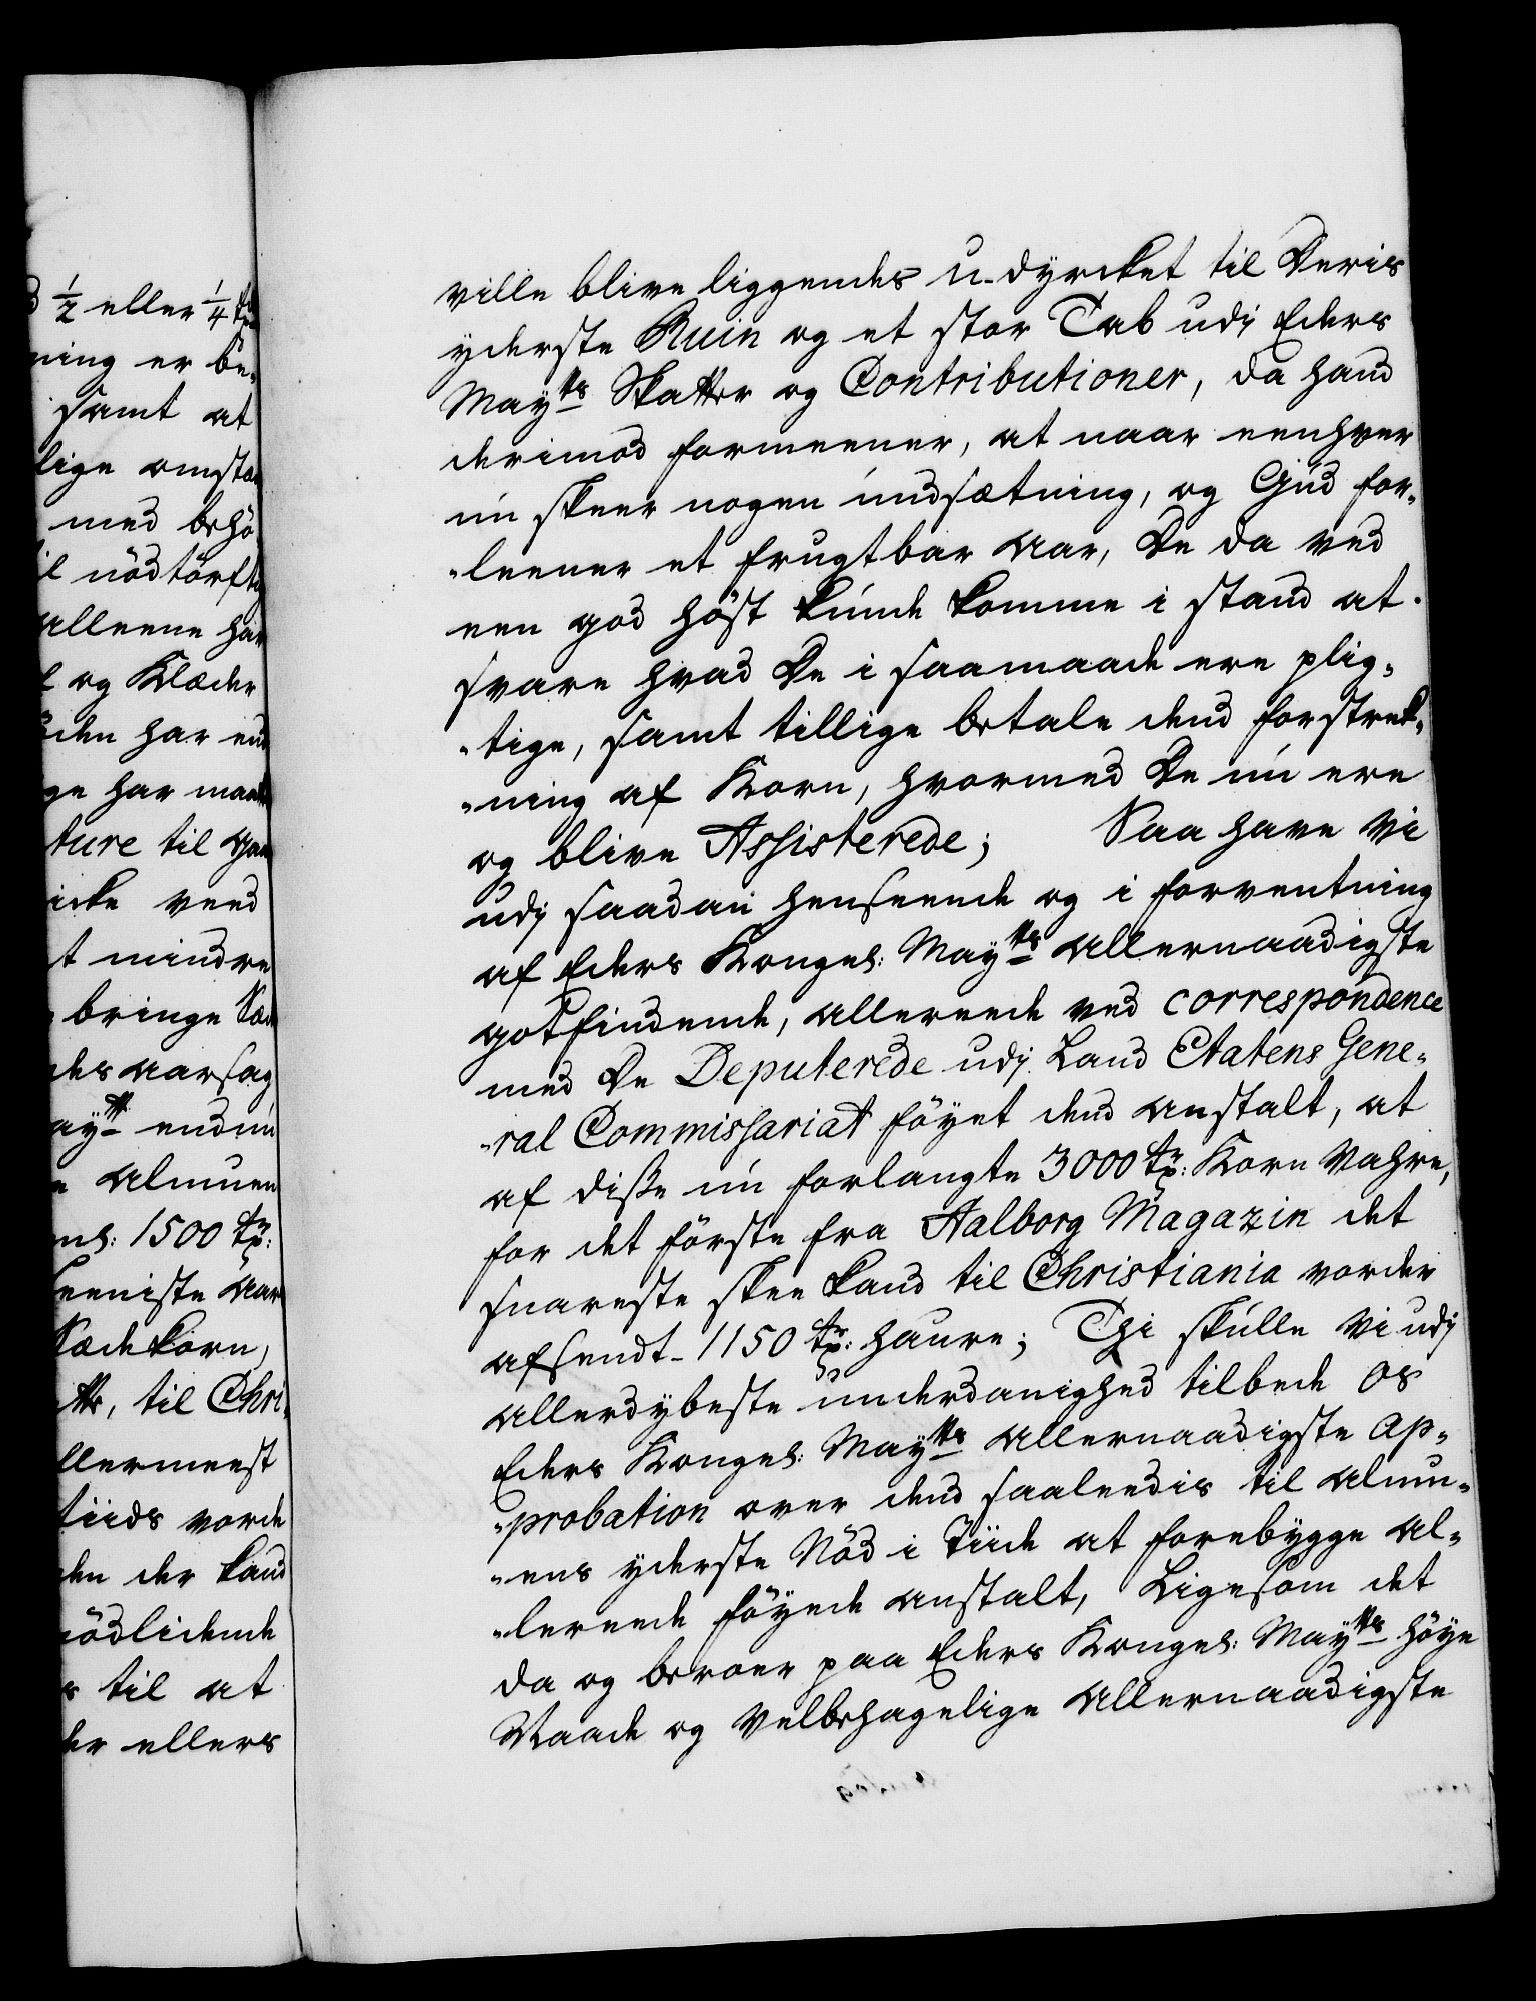 d ½ eller ¼ tde
ning er be-
samt at
lige omstæn
med behö
il nödtörfti
alleene har
l og Klæder
öden har end
ge har maatt
ture til gan
icke veed
t mindre
bringe Sæd
des aarsag
aytt endnu
e Almuen
ns: 1500 tr:
seeniste aar
Sædekorn,
tts, til Chri-
llermeest
tiids vorde
den der kand
nödlidende
s til at
der ellers
ville blive liggendes u-dyrcket til Deris
yderste Ruin og et stor Tab udj Eders
Maytts Skatter og Contributioner, da hand
derimod formeener, at naar eenhver
nu skeer nogen undsætning, og Gud for-
-leener et frugtbar aar, De da ved
een god höst kunde komme i stand at
svare hvad De i saamaade ere plig-
-tige, samt tillige betale dend forstreck-
-ning af Korn, hvormed De nu ere
og blive Assisterede; Saa have Vi
udj saadan henseende og i forventning
af Eders Kongel: Maytts allernaadigste
gotfindende, allereede ved correspondence
med De Deputerede udj Land Etatens Gene-
-ral Commissariat föyet dend anstalt, at
af disse nu forlangte 3000 tr: Korn Vahre,
for det förste fra Aalborg Magazin det
snareste skee kand til Christiania vorder
afsendt 1150 tr: haure; Thi skulle Vi udj
allerdybeste underdanighed tilbede os
Eders Kongel: Maytts allernaadigste ap-
-probation over dend saaleedis til almu-
-ens yderste Nöd i Tiide at forebygge al-
-lereede föyede anstalt, Ligesom det
da og beroer paa Eders Kongel: Maytts höye
Naade og Velbehagelige allernaadigste